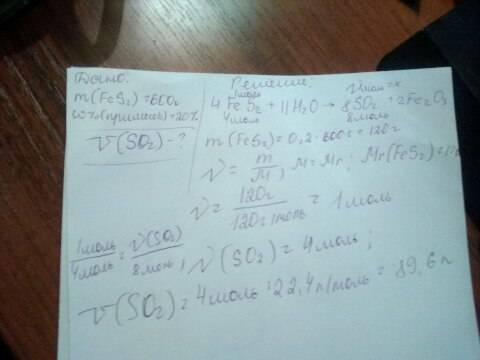 Дано:
m(FeS₂)=600г
ω%(примеси)=20%
V(SO₂)-?
Решение:
1моль
4FeS₂+11H₂O→8SO₂+2Fe₂O₃
4моль 8моль
m(FeS₂)=0,2·600г=120г
ν=m/M; M=Mr; Mr(FeS₂)=
ν=120г/120г/моль=1моль
1моль/4моль=ν(SO₂)/8моль; ν(SO₂)=4моль;
V(SO₂)=4моль·22,4л/моль=89,6л